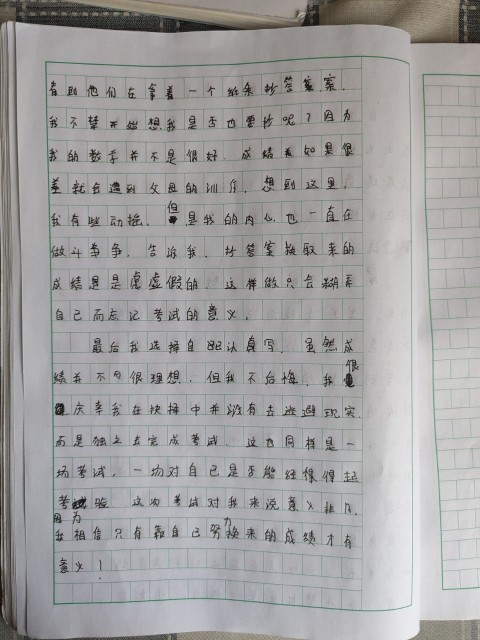 看到他们在拿着一个纸条抄答案,
我不禁开始想我是否也要抄呢?因为
我的数学并不是很好,成绩如果很
差就会遭到父母的训斥,想到这里,
我有些动摇,但是我的内心也一直在
做斗争争,告诉我,抄答案换取来的
成绩是是虚虚假的,这样做只会糊弄
自己而忘记考试的意义。
最后我选择自己认真写,虽然成
绩并不很理想,但我不后悔,我很
庆幸我在抉择中并没有去逃避现实
而是独立去完成考试,这也同样是一
场考试,一场对自己是否能经得起
考验,这次考试对我来说意义非凡,
因为我相信只有靠自己努力换来的成绩才有
意义!